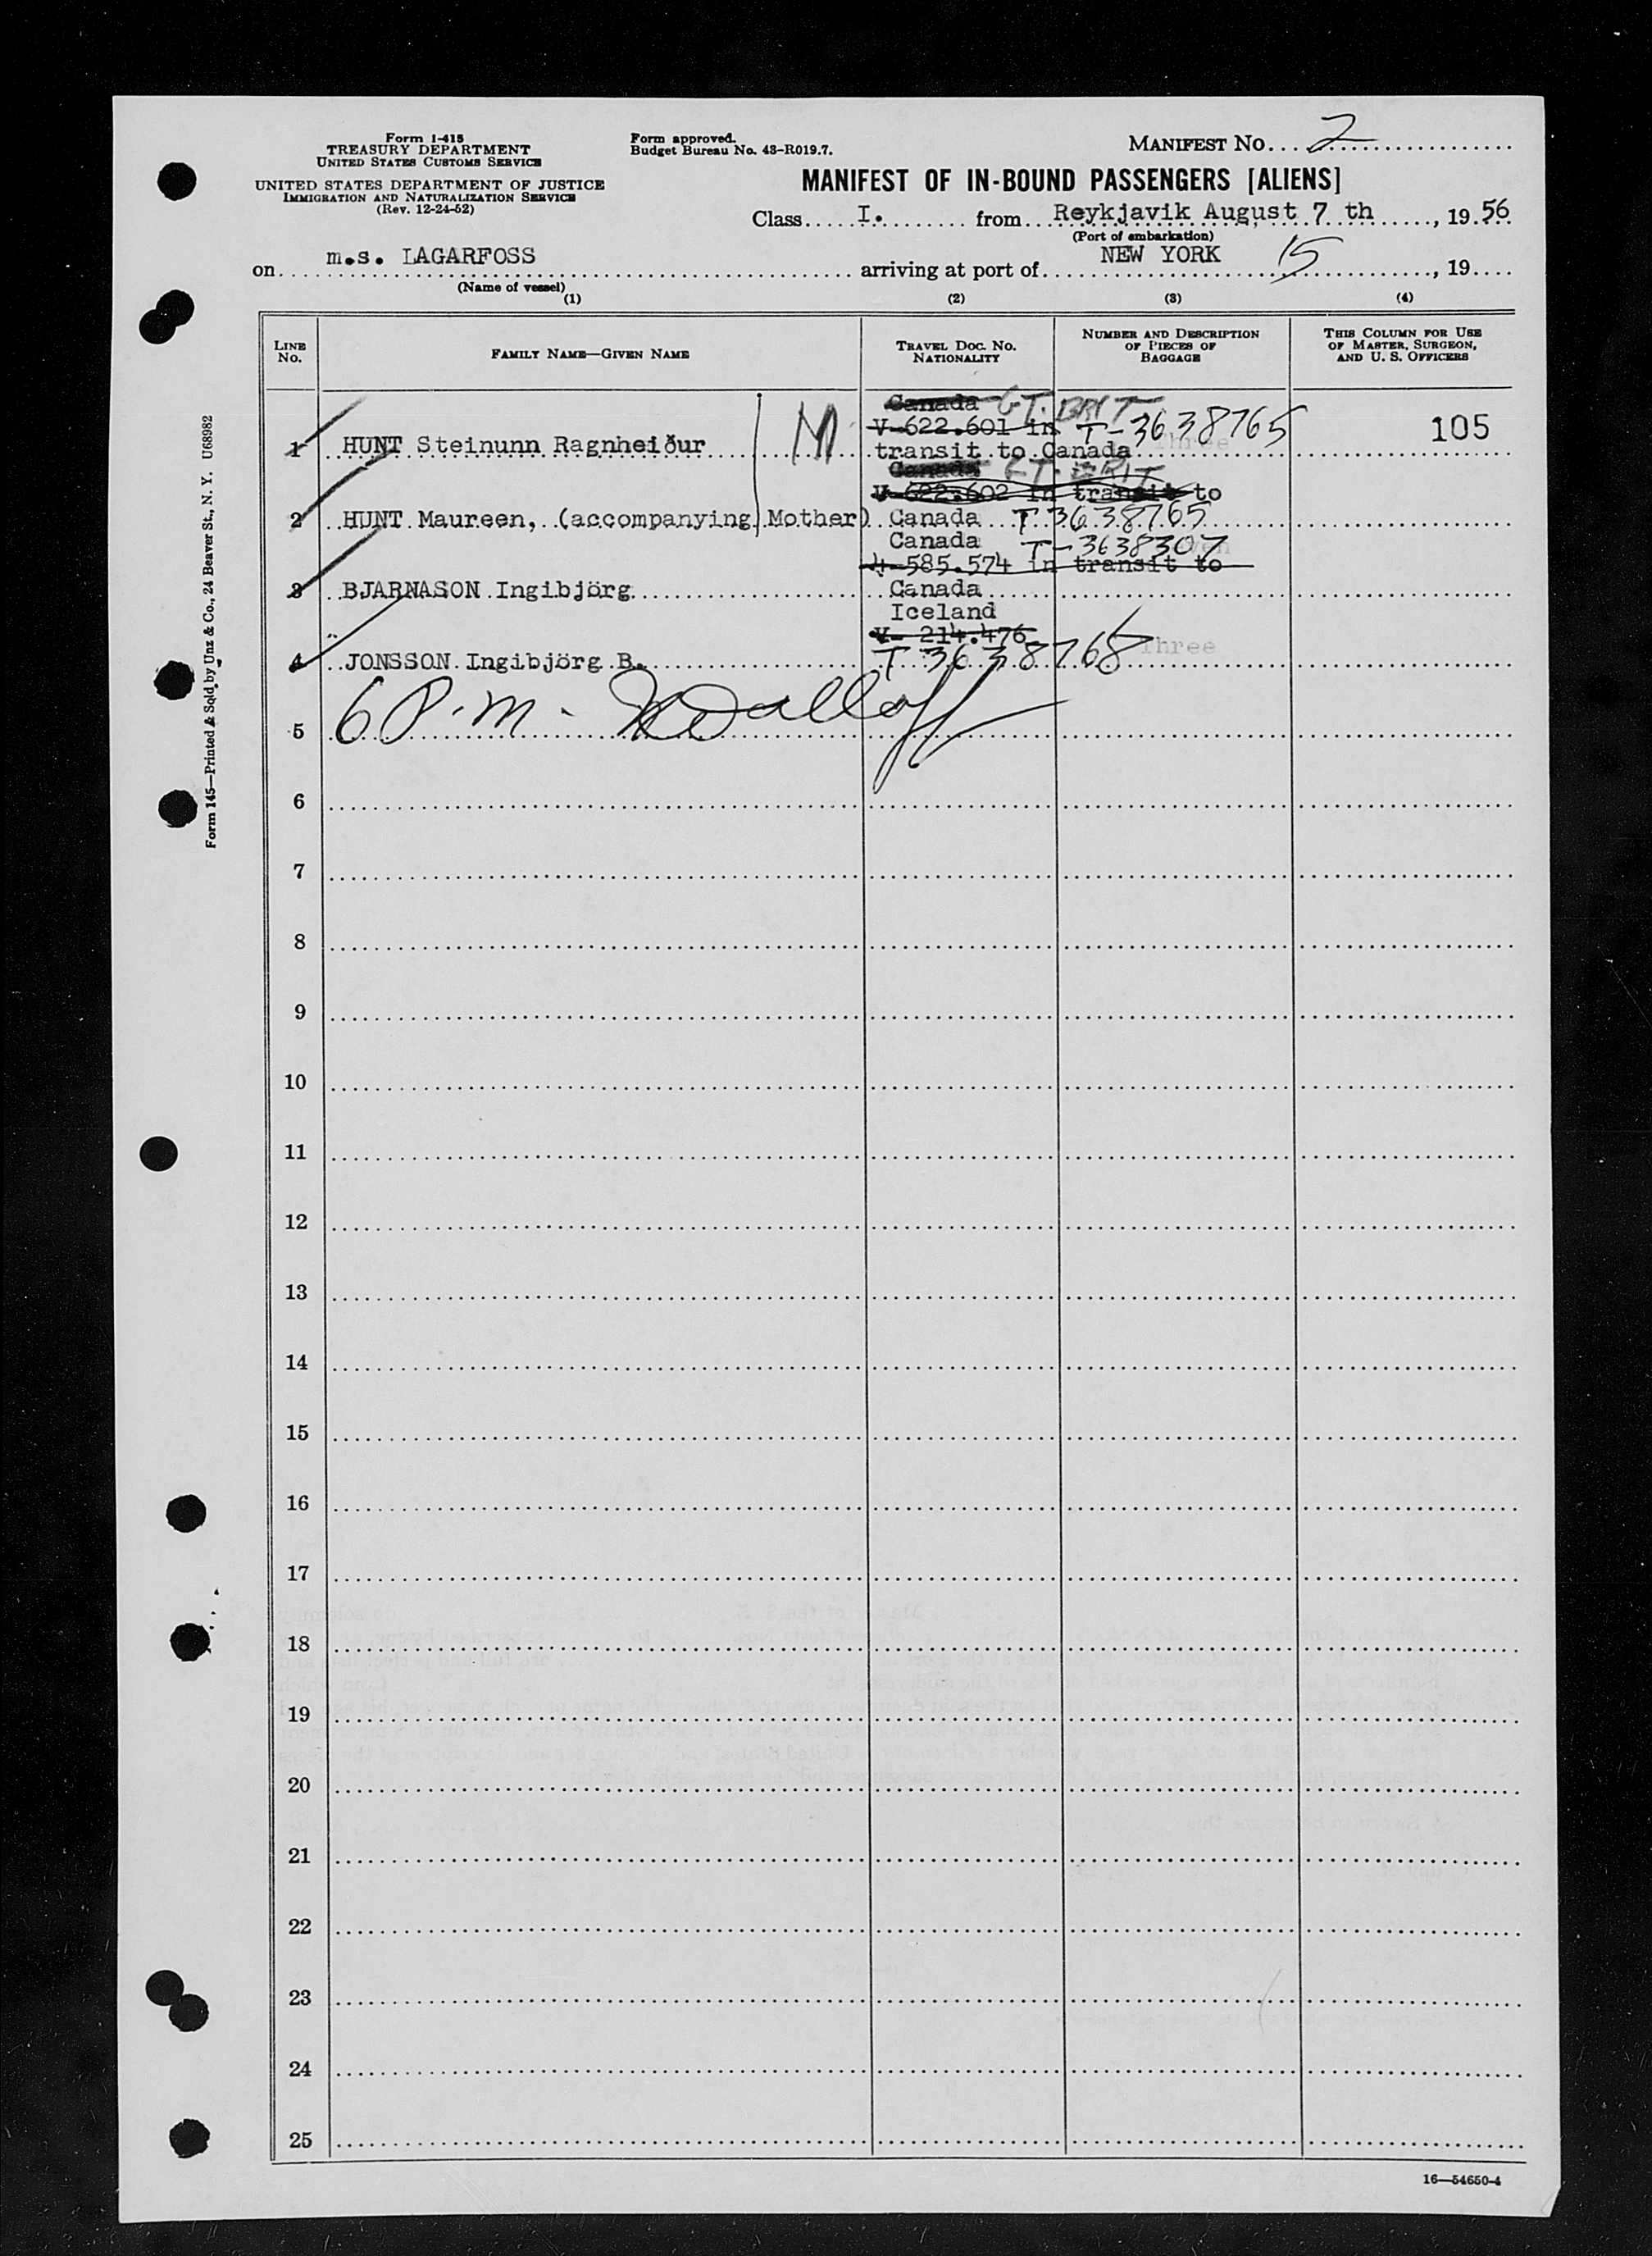 Form I-415
TREASURY DEPARTMENT
UNITED STATES CUSTOMS SERVICE
UNITED STATES DEPARTMENT OF JUSTICE
IMMIGRATION AND NATURALIZATION SERVICE
(Rev. 12-24-52)
Form approved.
Budget Bureau No. 43-R019.7.
MANIFEST NO. 2
MANIFEST OF IN-BOUND PASSENGERS [ALIENS]
Class I. from Reykjavik August 7 th, 19 56
(Port of embarkation)
on m.s. LAGARFOSS arriving at port of NEW YORK 15, 19
(Name of vessel)
(1) (2) (3) (4)
LINE NO.
FAMILY NAME—GIVEN NAME
TRAVEL DOC. NO. NATIONALITY
NUMBER AND DESCRIPTION OF PIECES OF BAGGAGE
THIS COLUMN FOR USE OF MASTER, SURGEON, AND U. S. OFFICERS
Canada GT. BRIT
V-622.601 in T-3638765 Three
1 HUNT Steinunn Ragnheiður M transit to Canada 105
Canada GT. BRIT
V-622.602 in transit to
2 HUNT Maureen, (accompanying Mother) Canada T 3638765
Canada T-3638307
585.574 in transit to
3 BJARNASON Ingibjörg Canada
Iceland
V- 214.476
4 JONSSON Ingibjörg B. T 3638768 Three
5 6 P.M.
6
7
8
9
10
11
12
13
14
15
16
17
18
19
20
21
22
23
24
25
16—54650-4
Form 145—Printed & Sold by Unz & Co., 24 Beaver St., N. Y. U68982